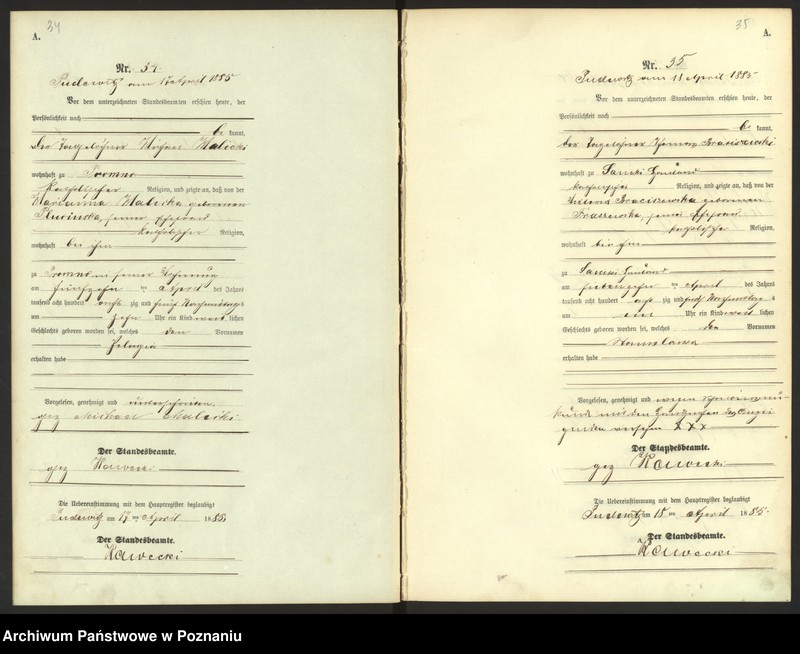 34
A.
Nr. 34
Pudewitz am 17 April 1885
Vor dem unterzeichneten Standesbeamten erschien heute, der
Persönlichkeit nach
be kannt,
Der Tagelöhner Michael Malicki
wohnhaft zu Promno
katholischer Religion, und zeigte an, daß von der
Marianna Malicka geborenen
seiner Ehefrau
katholischer Religion,
wohnhaft bei ihm
zu Promno in seiner Wohnung
am fünfzehn ten April des Jahres
tausend acht hundert acht zig und fünf Nachmittags
um zehn Uhr ein Kind weib lichen
Geschlechts geboren worden sei, welches den Vornamen
Pelagia
erhalten habe
Vorgelesen, genehmigt und unterschrieben.
gez Michael Malicki
Der Standesbeamte.
gez Kawecki
Die Uebereinstimmung mit dem Hauptregister beglaubigt
Pudewitz am 17 ten April 1885
Der Standesbeamte.
Kawecki
35
A.
Nr. 35
Pudewitz am 18 April 1885
Vor dem unterzeichneten Standesbeamten erschien heute, der
Persönlichkeit nach
be kannt,
der Tagelöhner Braciszewski
wohnhaft zu Hauland
katholischer Religion, und zeigte an, daß von der
Braciszewska geborenen
seiner Ehefrau
katholischer Religion,
wohnhaft bei ihm
zu Hauland
am siebenzehn ten April des Jahres
tausend acht hundert acht zig und fünf Nachmittags
um ein Uhr ein Kind weib lichen
Geschlechts geboren worden sei, welches den Vornamen
Stanislawa
erhalten habe
Vorgelesen, genehmigt und wegen Schreibensun-
kunde mit den Handzeichen des Anzei
genden versehen XXX
Der Standesbeamte.
gez Kawecki
Die Uebereinstimmung mit dem Hauptregister beglaubigt
Pudewitz am 18 ten April 1885
Der Standesbeamte.
Kawecki
Archiwum Państwowe w Poznaniu